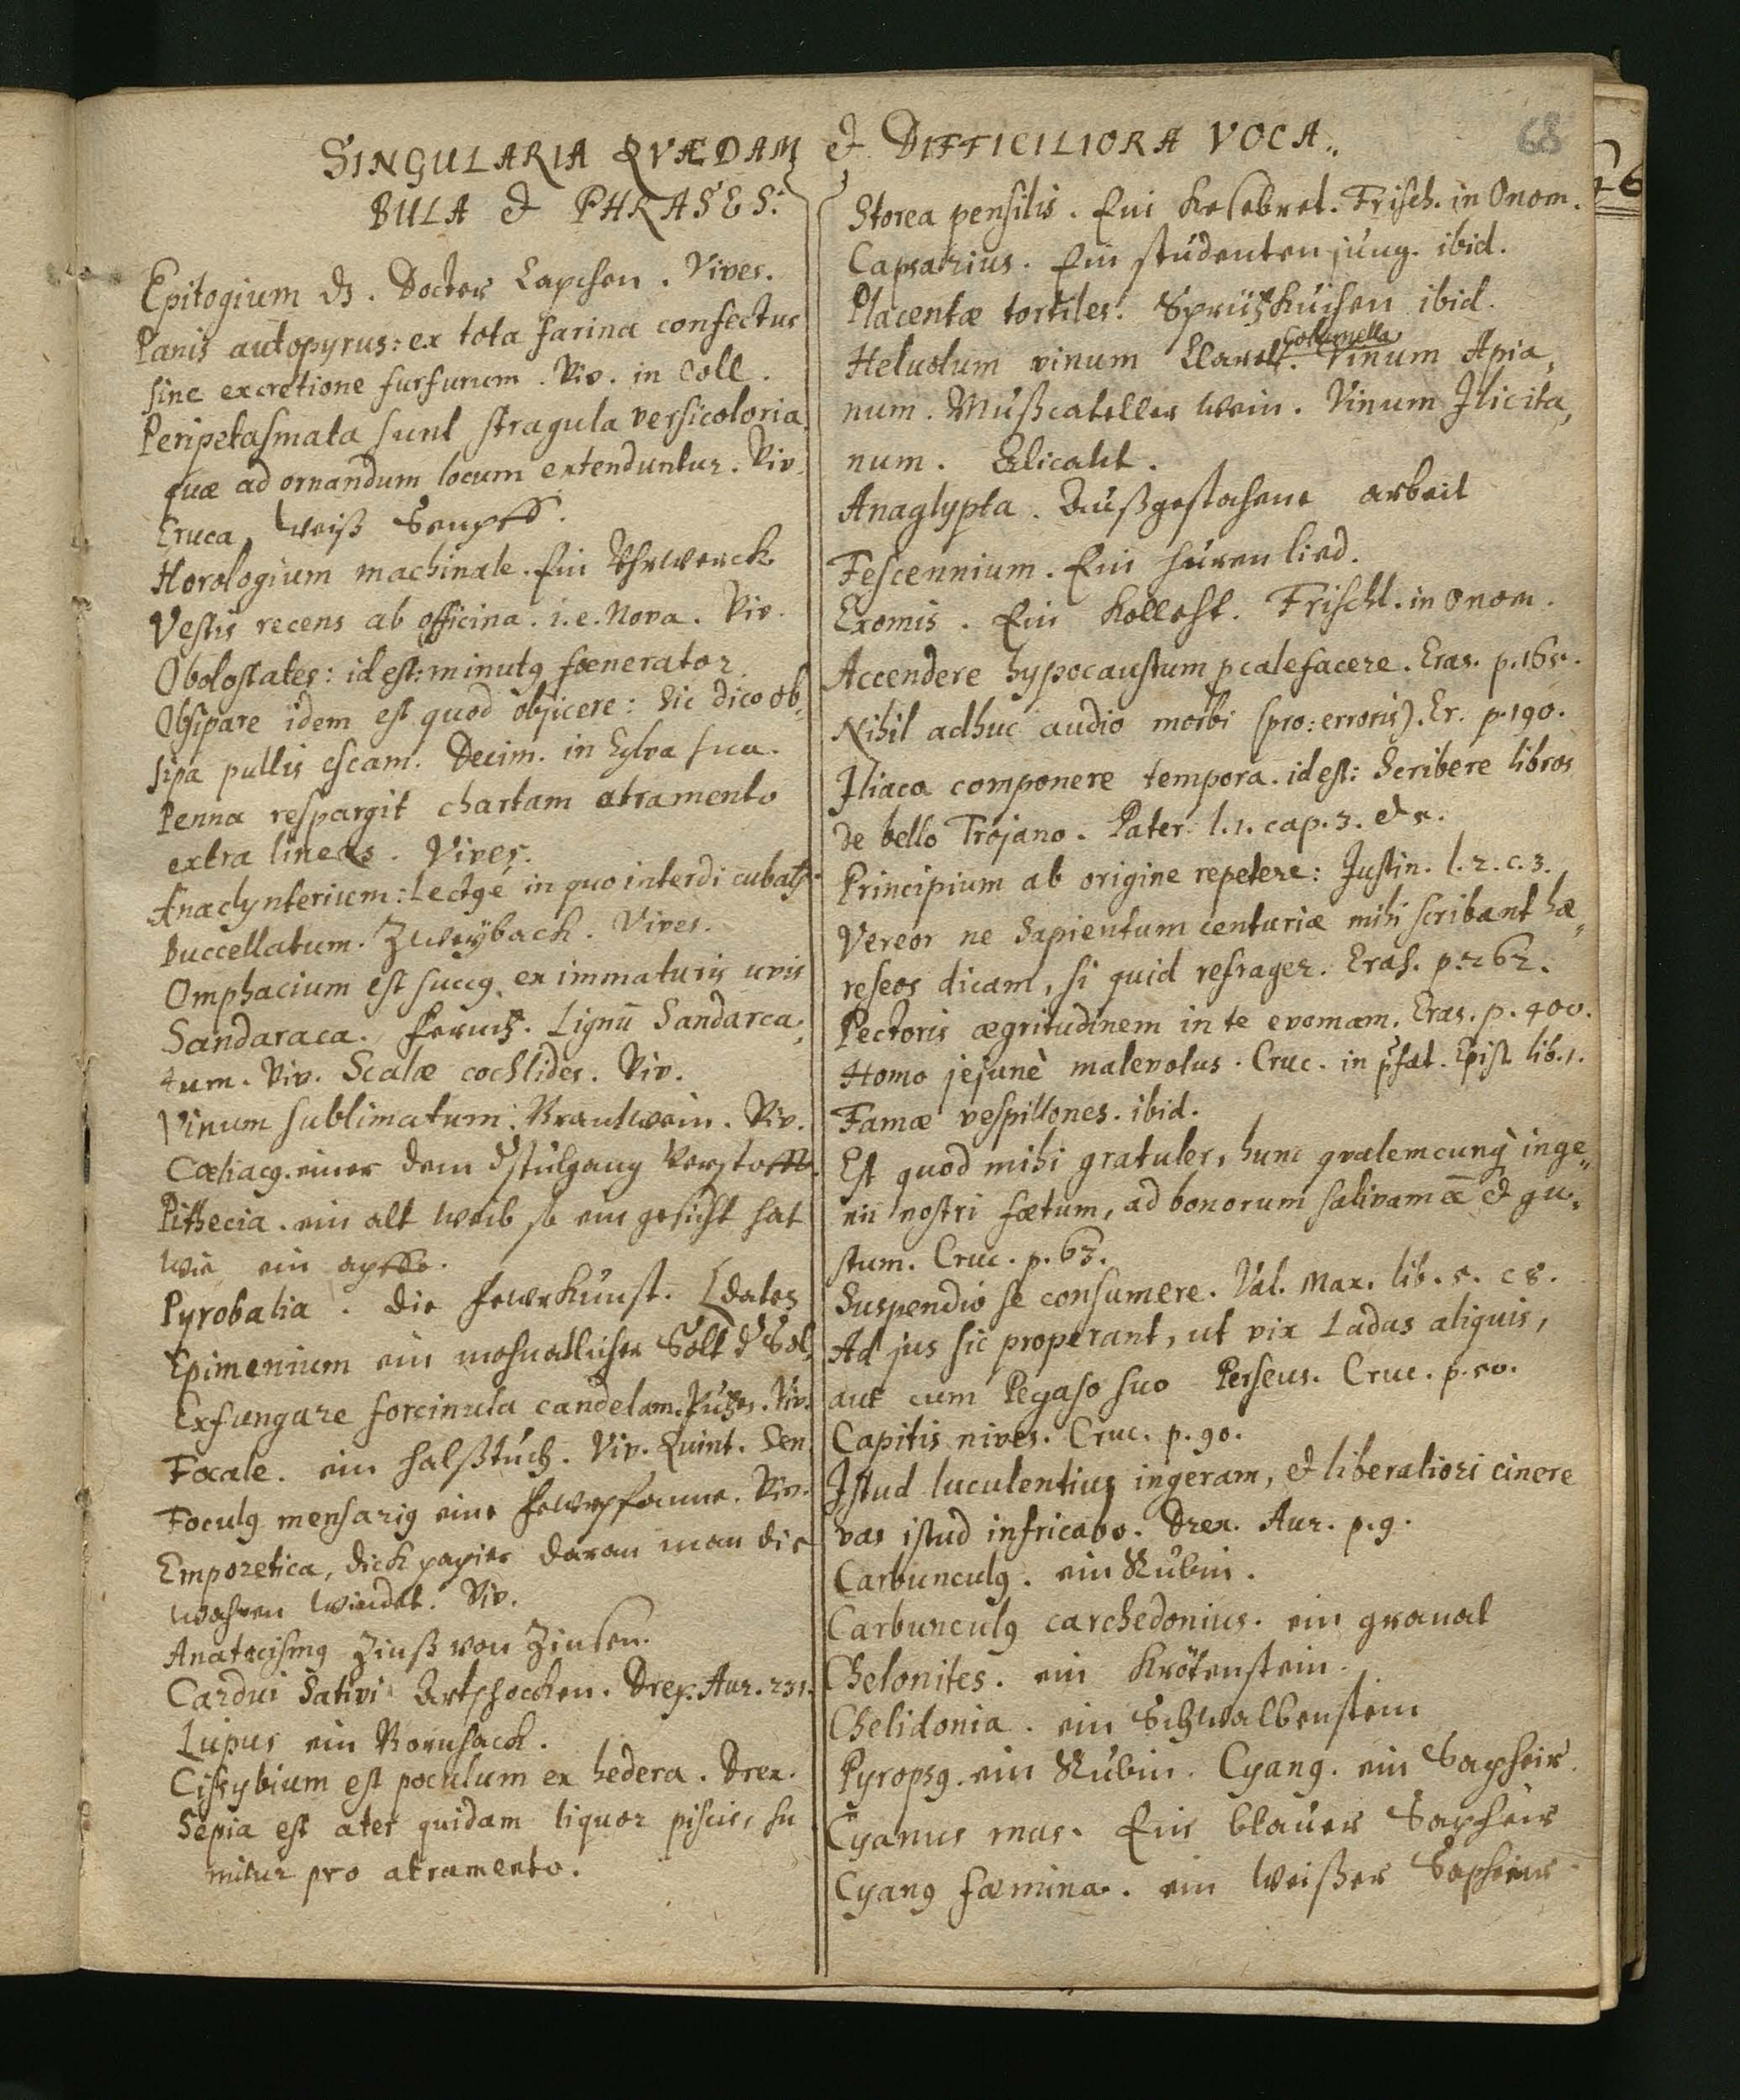 SINGULARIA QVÆDAM & DIFFICILIORA VOCA„
BULA & PHRASES.
68
Epitogium ds. Doctor Lapchen. Vives.
Panis autopyrus: ex tota farina confectus
sine excretione furfurum. Viv. in Coll.
Peripetasmata sunt stragula versicoloria
quæ ad ornandum locum extenduntur. Viv.
Eruca, weiß Senpff.
Horologium machinale. Ein Uhrwerck
Vestis recens ab officina. i.e. Nova. Viv.
Obolostates: id est: minutꝰ fœnerator
Obsipare idem est quod objicere: Sic dico ob„
sipa pullis escam. Decim. in Sylva sua.
Penna respargit chartam atramento
extra lineas. Vives.
Anaclynterium: Lectꝰ e in quo interdi cubatꝰ.
Buccellatum. Zweyback. Vives.
Omphacium est succꝰ ex immaturis uvis
Sandaraca. Fernitz. Lignū Sandarca„
tum. Viv. Scalæ cochlides. Viv.
Vinum sublimatum. Brantwein. Viv.
Cœliacꝰ. einer dem d' stulgang verstofft.
Pithecia. ein alt weib so ein gesicht hat
wie ein apffe.
Pyrobalia. die fewrkunst. [dates
Epimenium ein mohnatlicher Solt d' Sol„
Exfungare forcinula candelam. Putzen. Viv.
Focale. ein halßtuch. Viv. Quint. Sen.
Foculꝰ mensariꝰ eine fewrpfanne. Viv.
Emporetica, dick papier daran man die
wahren windet. Viv.
Anatocismꝰ Zinß von Zinsen.
Cardui Sativi Artschocken. Drex. Aur. 231.
Lupus ein Bornhack.
Cissybium est poculum ex hedera. Drex.
Sepia est ater quidam liquor piscis, su
mitur pro atramento.
Storea pensilis. Ein Kesebret. Frisch. in Onom.
Capsarius. Ein studenten jung. ibid.
Placentæ tortiles. Sprützkuchen ibid.
Columella
Heluolum vinum Claret. Vinum Apia„
num. Mußcateller wein. Vinum Ilicita„
num. Alicant.
Anaglypta. Außgestochene arbeit
Fescennium. Ein huren lied.
Exomis. Ein Kollest. Frischl. in Onom.
Accendere hypocaustum p calefacere. Eras. p. 165.
Nihil adhuc audio morbi (pro: erroris). Er. p. 190.
Iliaca componere tempora. id est: Scribere libros
de bello Trojano. Pater. l. 1. cap. 3. & 5.
Principium ab origine repetere: Justin. l. 2. c. 3.
Vereor ne Sapientum centuriæ mihi scribant hæ„
reseos dicam, si quid refrager. Eras. p. 262.
Pectoris ægritudinem in te evomam. Eras. p. 400.
Homo jejunè malevolus. Cruc. in p̄fat. Epist. lib. 1.
Famæ vespillones. ibid.
Est quod mihi gratuler, hunc qvalemcunq inge„
nii nostri fœtum, ad bonorum salivam eē & gu„
stum. Cruc. p. 63.
Suspendio se consumere. Val. Max. lib. 5. c 8.
Ad jus sic properant, ut vix Ladas aliquis,
aut cum Pegaso suo Perseus. Cruc. p. 50.
Capitis nives. Cruc. p. 90.
Istud luculentius ingeram, & liberaliori cinere
vas istud infricabo. Drex. Aur. p. 9.
Carbunculꝰ. ein Rubin.
Carbunculꝰ carchedonius. ein granat
Chelonites. ein Krötenstein.
Chelidonia. ein Schwalbenstein
Pyropꝰ. ein Rubin. Cyanꝰ. ein Sapheir.
Cyanus mas. Ein blauer Sapheir
Cyanꝰ fœmina. ein weißer Sapheir